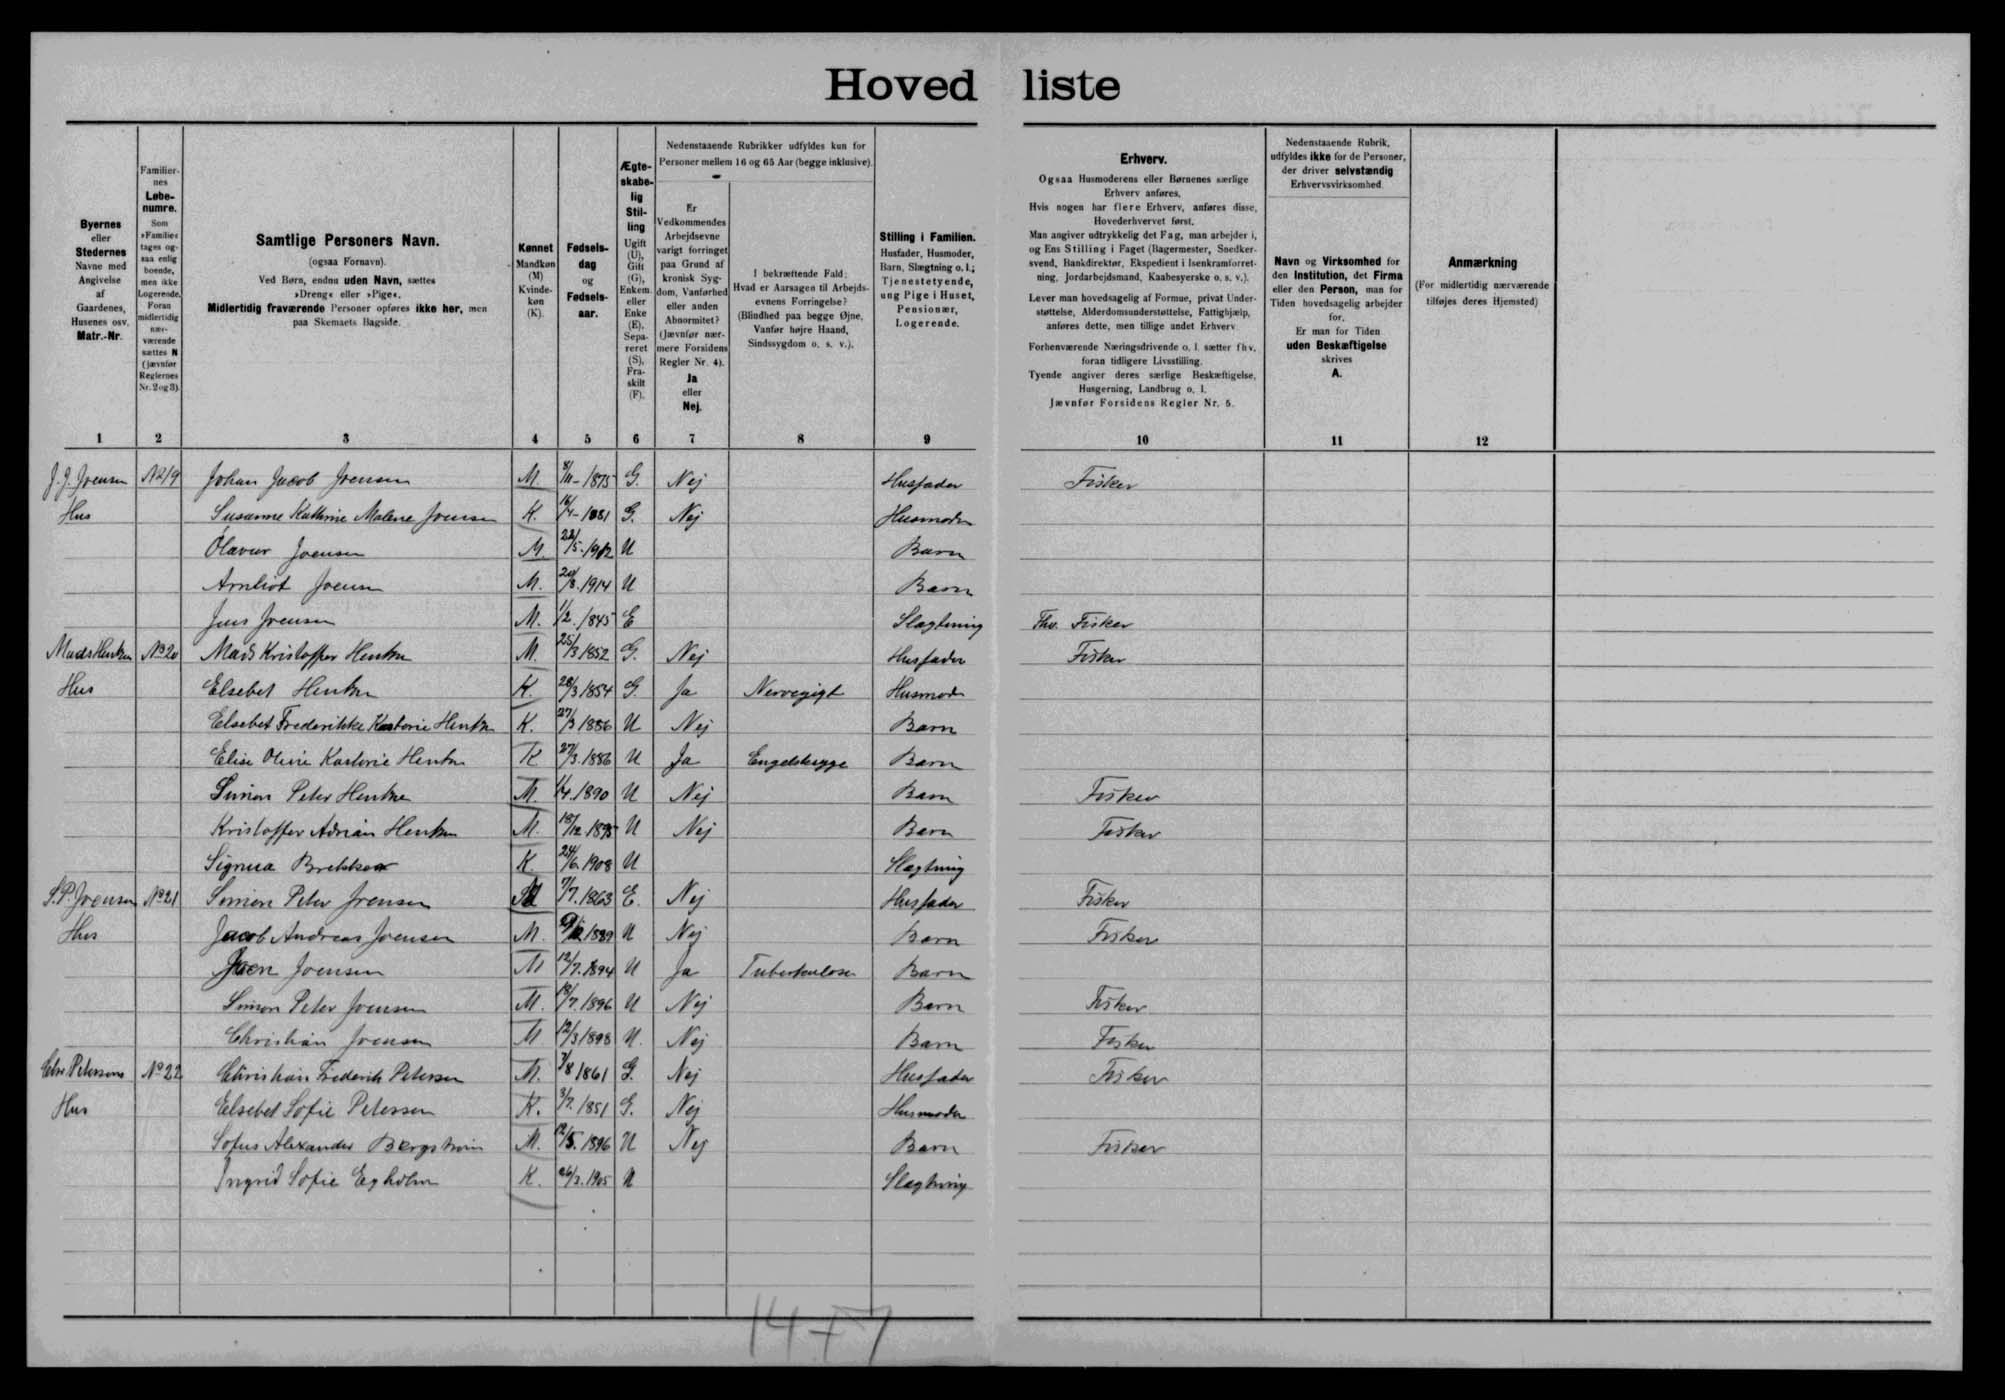 Hovedliste
Byernes eller Stedernes Navne med Angivelse af Gaardenes, Husenes osv. Matr.-Nr.
Familiernes Løbenumre. Som »Familie« tages ogsaa enlig boende, men ikke Logerende. Foran midlertidig nærværende sættes N (jævnfør Reglernes Nr. 2 og 3).
Samtlige Personers Navn. (ogsaa Fornavn). Ved Børn, endnu uden Navn, sættes »Dreng« eller »Pige«. Midlertidig fraværende Personer opføres ikke her, men paa Skemaets Bagside.
Kønnet Mandkøn (M) Kvindekøn (K).
Fødselsdag og Fødselsaar.
Ægteskabelig Stilling Ugift (U), Gift (G), Enkem. eller Enke (E), Separeret (S), Fraskilt (F).
Nedenstaaende Rubrikker udfyldes kun for Personer mellem 16 og 65 Aar (begge inklusive).
Er Vedkommendes Arbejdsevne varigt forringet paa Grund af kronisk Sygdom, Vanførhed eller anden Abnormitet? (Jævnfør nærmere Forsidens Regler Nr. 4). Ja eller Nej.
I bekræftende Fald: Hvad er Aarsagen til Arbejdsevnens Forringelse? (Blindhed paa begge Øjne, Vanfør højre Haand, Sindssygdom o. s. v.).
Stilling i Familien. Husfader, Husmoder, Barn, Slægtning o. l.; Tjenestetyende, ung Pige i Huset, Pensionær, Logerende.
Erhverv.
Ogsaa Husmoderens eller Børnenes særlige Erhverv anføres.
Hvis nogen har flere Erhverv, anføres disse, Hovederhvervet først.
Man angiver udtrykkelig det Fag, man arbejder i, og Ens Stilling i Faget (Bagermester, Snedkersvend, Bankdirektør, Ekspedient i Isenkramforretning, Jordarbejdsmand, Kaabesyerske o. s. v.).
Lever man hovedsagelig af Formue, privat Understøttelse, Alderdomsunderstøttelse, Fattighjælp, anføres dette, men tillige andet Erhverv
Forhenværende Næringsdrivende o. l. sætter fhv. foran tidligere Livsstilling.
Tyende angiver deres særlige Beskæftigelse, Husgerning, Landbrug o. l.
Jævnfør Forsidens Regler Nr. 5.
Nedenstaaende Rubrik, udfyldes ikke for de Personer, der driver selvstændig Erhvervsvirksomhed.
Navn og Virksomhed for den Institution, det Firma eller den Person, man for Tiden hovedsagelig arbejder for.
Er man for Tiden uden Beskæftigelse skrives A.
Anmærkning (For midlertidig nærværende tilføjes deres Hjemsted)
1 2 3 4 5 6 7 8 9 10 11 12
J. J. Joensen №19 Johan Jacob Joensen M. 8/11-1875 G. Nej Husfader Fisker
Hus Susanne Kathrine Malene Joensen K. 16/4-1881 G. Nej Husmoder
Olavur Joensen M. 22/5-1912 U Barn
Arnliot Joensen M. 20/8.1914 U Barn
Jens Joensen M. 1/2.1845 E Slægtning Fhv. Fisker
Mads Hentzes №20 Mads Kristoffer Hentze M. 25/3 1852 G. Nej Husfader Fisker
Hus Elsebet Hentze K. 28/3 1854 G. Ja Nervegigt Husmoder
Elsebet Frederikke Hentze K. 27/3 1886 U Nej Barn
Elise Olivie Hentze K 27/3.1886 U Ja Engelsksyge Barn
Simon Peter Hentze M. 1/4.1890 U Nej Barn Fisker
Kristoffer Adrian Hentze M. 18/12 1895 U Nej Barn Fisker
Signua K 24/6 1908 U Slægtning
S. P. Joensen №21 Simon Peter Joensen M 7/7.1863 E. Nej Husfader Fisker
Hus Jacob Andreas Joensen M. 1889 U Nej Barn Fisker
Joen Joensen M 12/7.1894 U Ja Tuberkulose Barn
Simon Peter Joensen M. 18/7.1896 U Nej Barn Fisker
Christian Joensen M 12/3 1898 U. Nej Barn Fisker
Chr. Petersens №22 Christian Frederik Petersen M. 3/8 1861 G. Nej Husfader Fisker
Hus Elsebet Sofie Petersen K. 3/7.1851 G. Nej Husmoder
Sofus Alexander Bergstrøm M. 12/5.1896 U Nej Barn Fisker
Ingrid Sofie Egholm K. 26/2.1905 U Slægtning
14+7